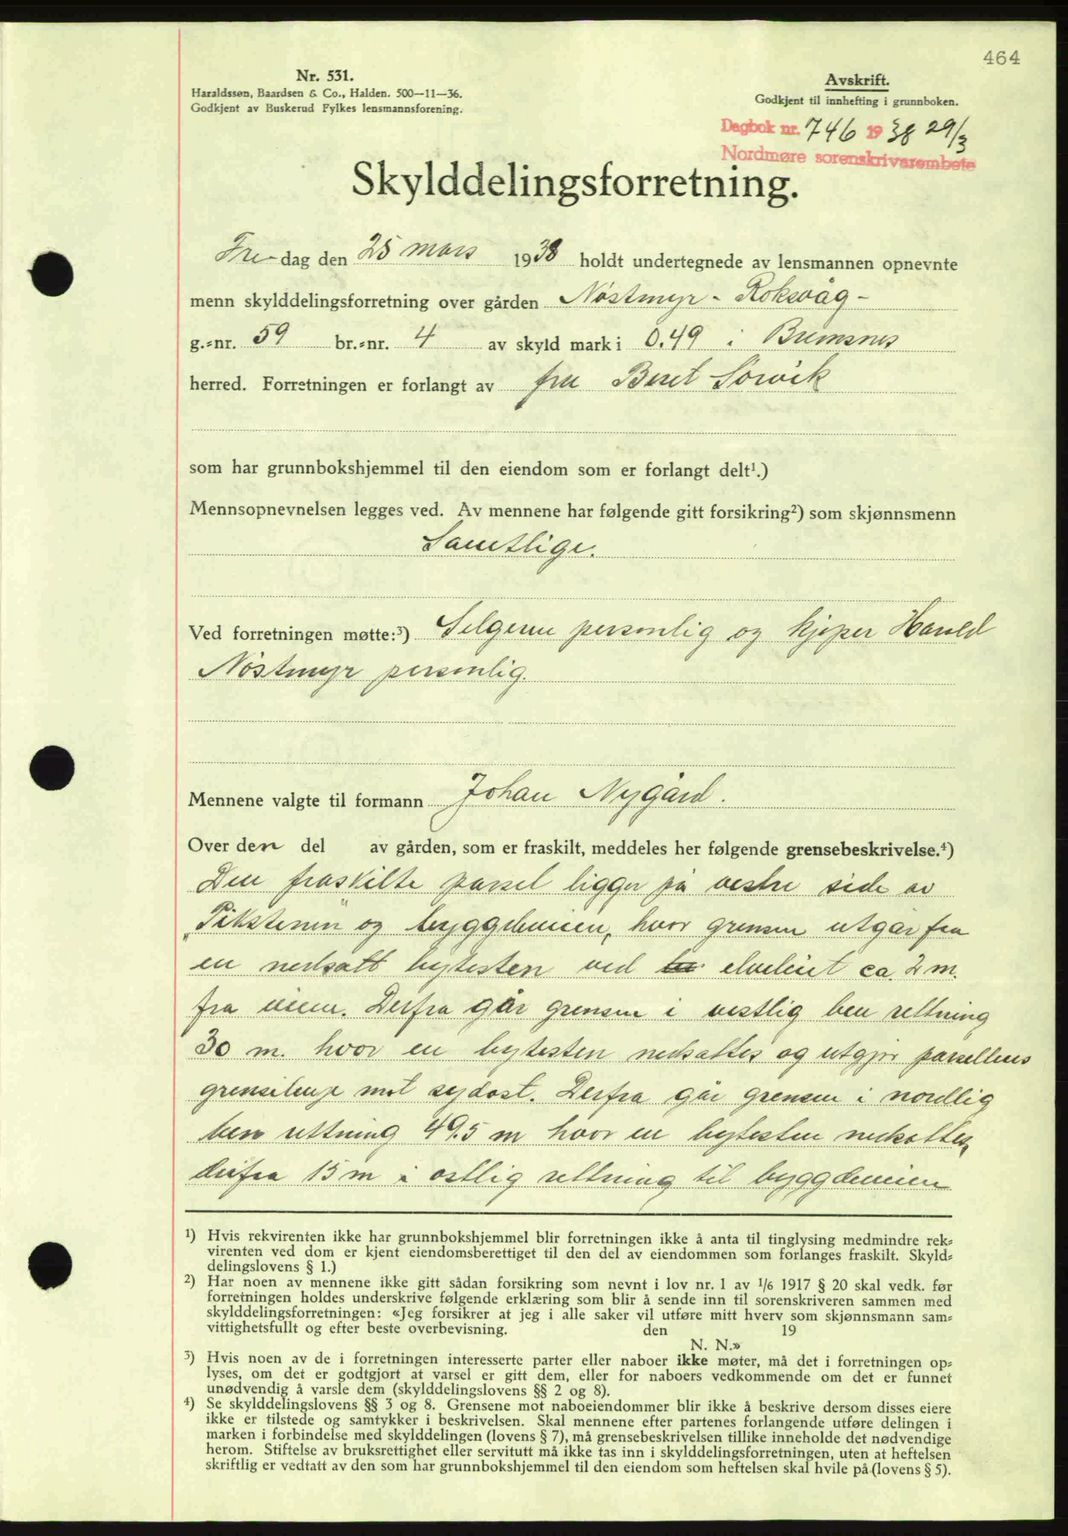 464
Nr. 531.
Haraldssøn, Baardsen & Co., Halden. 500—11—36.
Godkjent av Buskerud Fylkes lensmannsforening.
Avskrift.
Godkjent til innhefting i grunnboken.
Dagbok nr. 746 1938 29/3
Nordmøre sorenskriverembete
Skylddelingsforretning.
Fre-dag den 25 mars 1938 holdt undertegnede av lensmannen opnevnte
menn skylddelingsforretning over gården Nøstmyr - Roksvåg -
g.=nr. 59 br.=nr. 4 av skyld mark i 0.49 i Bremsnes
herred. Forretningen er forlangt av fru Beret Sørvik
som har grunnbokshjemmel til den eiendom som er forlangt delt¹.)
Mennsopnevnelsen legges ved. Av mennene har følgende gitt forsikring²) som skjønnsmenn
Samtlige.
Ved forretningen møtte:³) Selgeren personlig og kjøper Harald
Nøstmyr personlig.
Mennene valgte til formann Johan Nygård.
Over den del av gården, som er fraskilt, meddeles her følgende grensebeskrivelse.⁴)
Den fraskilte parsel ligger på vestre side av
„Pikstenen" og byggdeveien, hvor grensen utgår fra
en nedsatt bytesten ved elveleiet ca. 2 m.
fra veien. Derfra går grensen i vestlig ben rettning
30 m. hvor en bytesten nedsattes og utgjør parsellens
grenselinje mot sydost. Derfra går grensen i nordlig
ben rettning 49.5 m hvor en bytesten nedsattes,
derfra 15 m i østlig rettning til byggdeveien
¹) Hvis rekvirenten ikke har grunnbokshjemmel blir forretningen ikke å anta til tinglysing medmindre rek=
virenten ved dom er kjent eiendomsberettiget til den del av eiendommen som forlanges fraskilt. Skyld=
delingslovens § 1.)
²) Har noen av mennene ikke gitt sådan forsikring som nevnt i lov nr. 1 av 1/6 1917 § 20 skal vedk. før
forretningen holdes underskrive følgende erklæring som blir å sende inn til sorenskriveren sammen med
skylddelingsforretningen: «Jeg forsikrer at jeg i alle saker vil utføre mitt hverv som skjønnsmann sam=
vittighetsfullt og efter beste overbevisning. den 19
N. N.»
³) Hvis noen av de i forretningen interesserte parter eller naboer ikke møter, må det i forretningen op=
lyses, om det er godtgjort at varsel er gitt dem, eller for naboers vedkommende om det er funnet
unødvendig å varsle dem (skylddelingslovens §§ 2 og 8).
⁴) Se skylddelingslovens §§ 3 og 8. Grensene mot naboeiendommer blir ikke å beskrive dersom disses eiere
ikke er tilstede og samtykker i beskrivelsen. Skal mennene efter partenes forlangende utføre delingen i
marken i forbindelse med skylddelingen (lovens § 7), må grensebeskrivelsen tillike inneholde det nødvendige
herom. Stiftelse av bruksrettighet eller servitutt må ikke tas inn i skylddelingsforretningen, uten at heftelsen
skriftlig er vedtatt av den som har grunnbokshjemmel til den eiendom som heftelsen skal hvile på (lovens § 5).